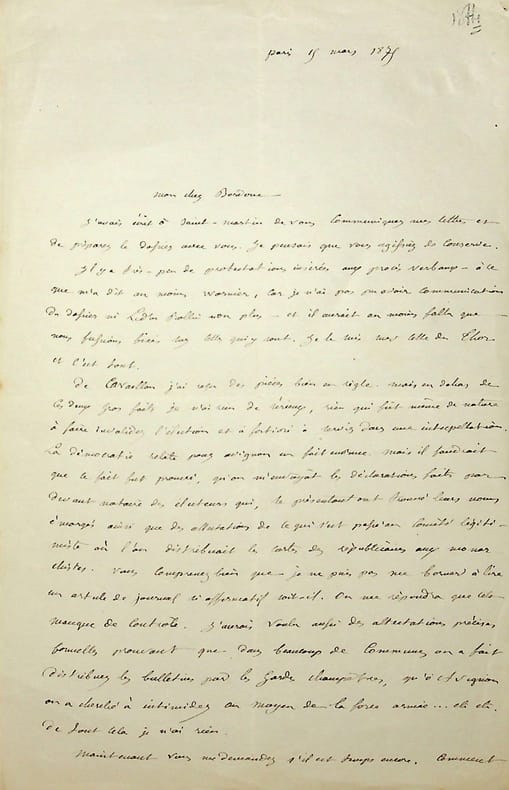 paris 15 mars 1875
mon cher Bordone
J'avais écrit à Saint-martin de vous communiquer mes lettres et
de préparer le dossier avec vous. Je pensais que vous agissiez de conserve.
Il y a très-peu de protestations insérées aux procès verbaux - à ce
que m'a dit au moins warnier, car je n'ai pas pu avoir communication
du dossier ni Ledru Rollin non plus - et il aurait au moins fallu que
nous fussions fixés sur celles qui y sont. Je le suis sur celle du Thor
et c'est tout.
De Cavaillon j'ai reçu des pièces bien en règle. mais en dehors de
ces deux gros faits je n'ai rien de sérieux, rien qui fût même de nature
à faire invalider l'élection et à fortiori à servir dans une interpellation.
La démocratie relate pour avignon un fait énorme. mais il faudrait
que le fait fut prouvé, qu'on m'envoyât les déclarations faites par
devant notaire des électeurs qui, se présentant ont trouvé leurs noms
émargés ainsi que des attestations de ce qui s'est passé au comité légiti-
miste où l'on distribuait les cartes des républicains aux monar
chistes. Vous comprenez bien que je ne puis pas me borner à lire
un article de journal si affirmatif soit-il. On me répondra que cela
manque de contrôle. J'aurais voulu aussi des attestations précises
formelles prouvant que dans beaucoup de Communes on a fait
distribuer les bulletins par les Gardes champêtres, qu'à Avignon
on a cherché à intimider au moyen de la force armée... etc etc.
de tout cela je n'ai rien.
Maintenant vous me demandez s'il est temps encore. Comment